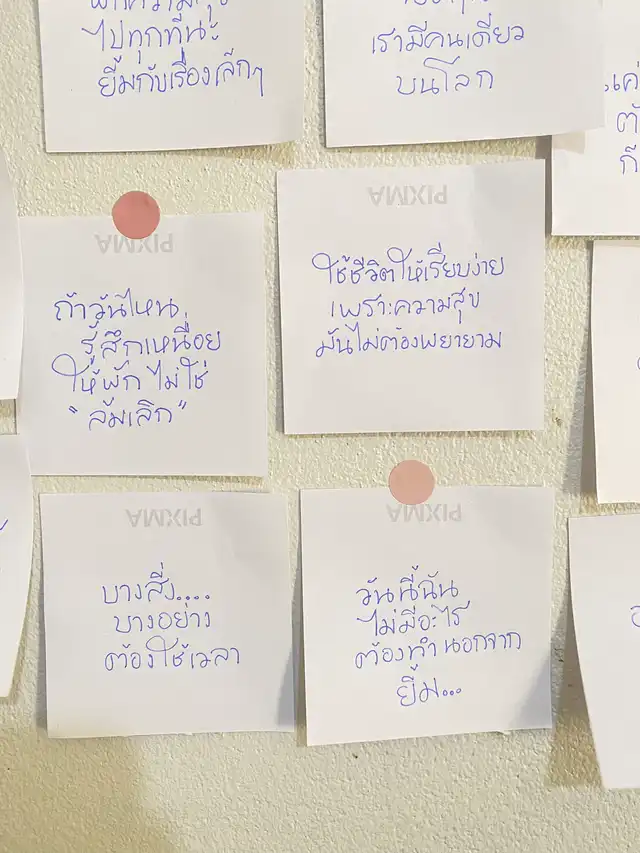 ไปทุกที่นะ
ยิ้มกับเรื่องเล็กๆ
เรามีคนเดียว
บนโลก
PIXMA
ถ้าวันไหน
รู้สึกเหนื่อย
ให้พัก ไม่ใช่
"ล้มเลิก"
PIXMA
ใช้ชีวิตให้เรียบง่าย
เพราะความสุข
มันไม่ต้องพยายาม
PIXMA
บางสิ่ง....
บางอย่าง
ต้องใช้เวลา
PIXMA
วันนี้ฉัน
ไม่มีอะไร
ต้องทำ นอกจาก
ยิ้ม...